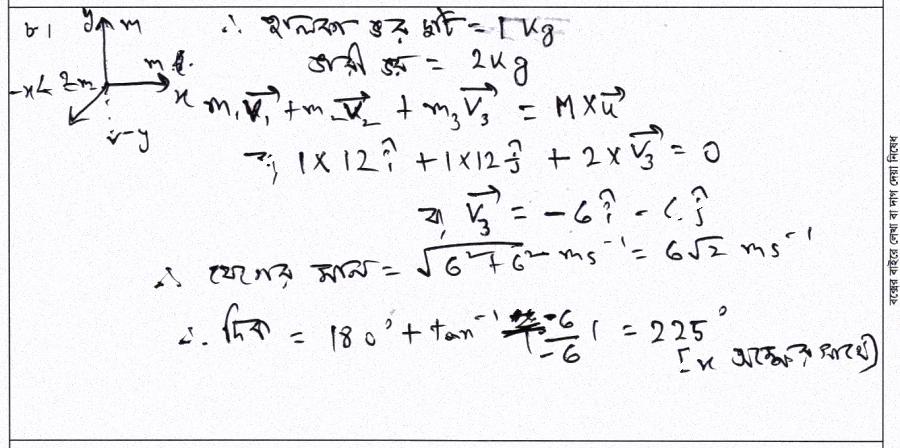 ৮। y m
∴ হালকা ভর দুটি = 1 kg
m
ভারী ভর = 2kg
-x 2m x
-y
m₁V₁⃗ + m₂V₂⃗ + m₃V₃⃗ = M×u⃗
বা, 1×12î + 1×12ĵ + 2×V₃⃗ = 0
বা, V₃⃗ = -6î - 6ĵ
∴ বেগের মান = √(6²+6²) ms⁻¹ = 6√2 ms⁻¹
∴ দিক = 180° + tan⁻¹ |-6/-6| = 225°
[x অক্ষের সাথে]
বক্সের বাইরে লেখা বা দাগ দেয়া নিষেধ